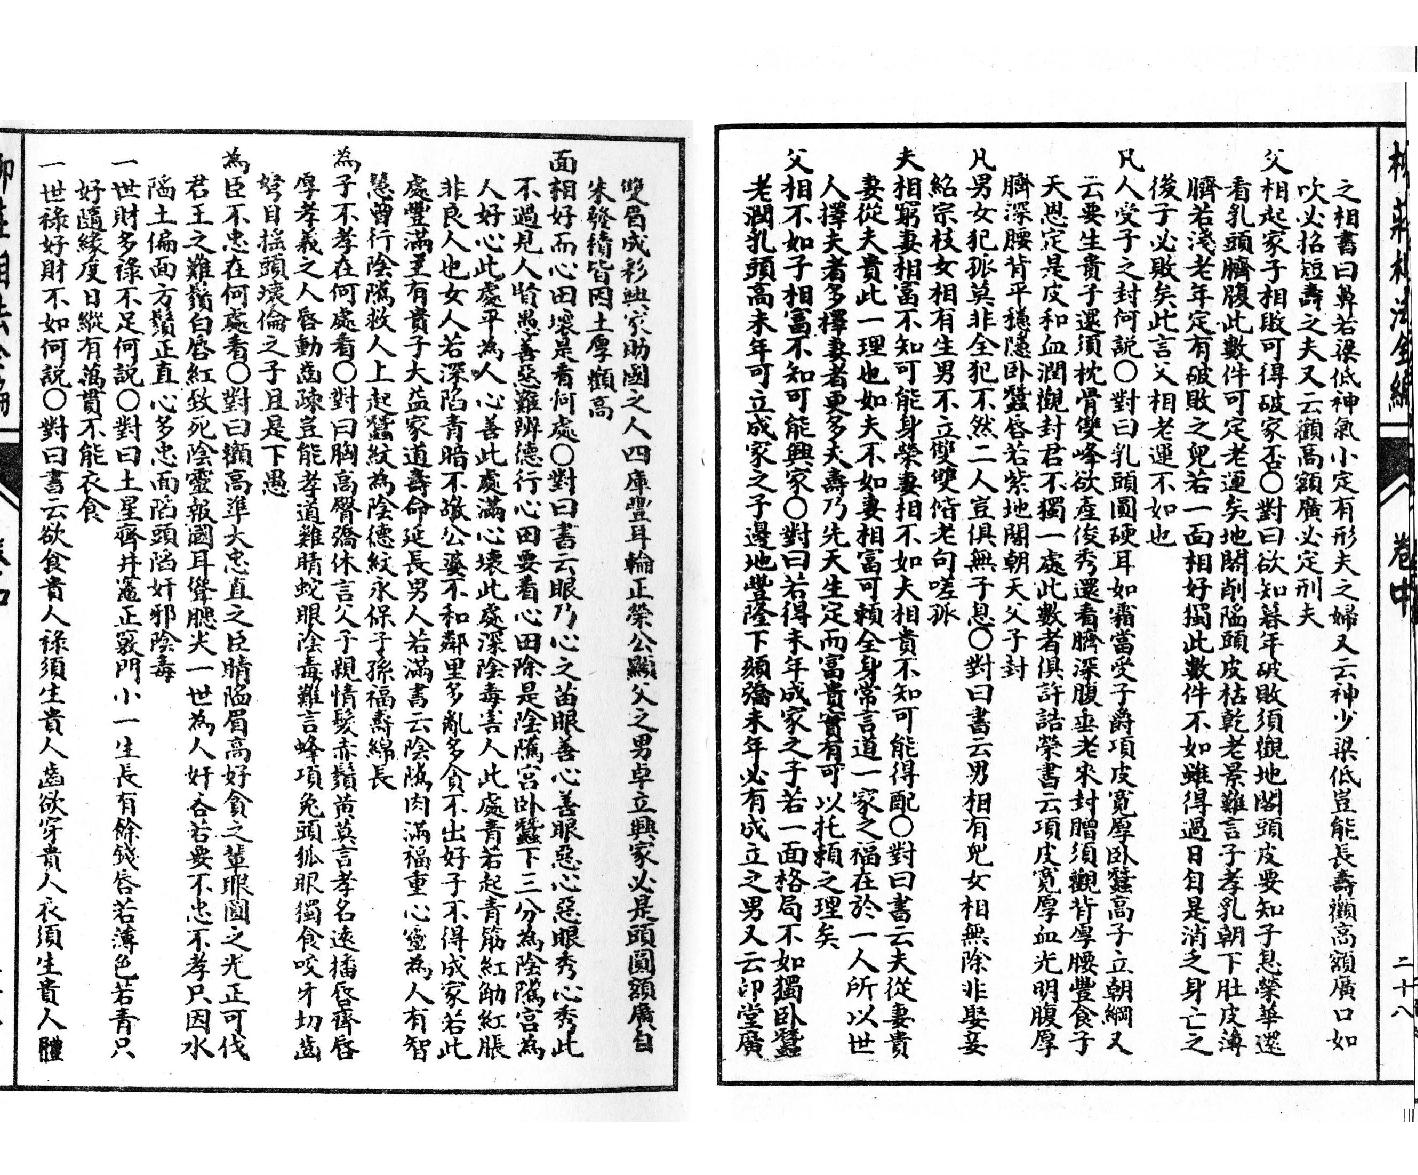 柳莊相法全編
卷中
二十八
之相書曰鼻若梁低神氣小定有形夫之婦又云神少梁低豈能長壽顴高額廣口如
吹必招短壽之夫又云顴高額廣必定刑夫
父相起家子相敗可得破家否〇對曰欲知暮年破敗須觀地閣頭皮要知子息榮華還
看乳頭臍腹此數件可定老運矣地閣削陷頭皮枯乾老景難言子孝乳朝下肚皮薄
臍若淺老年定有破敗之兒若一面相好獨此數件不如雖得過日自是消乏身亡之
後子必敗矣此言父相老運不如也
凡人受子之封何說〇對曰乳頭圓硬耳如霜當受子爵項皮寬厚卧蠶高子立朝綱又
云要生貴子還須枕骨雙峰欲產俊秀還看臍深腹垂老來封贈須觀背厚腰豐食子
天恩定是皮和血潤觀封君不獨一處此數者俱許誥榮書云項皮寬厚血光明腹厚
臍深腰背平穩隱卧蠶唇若紫地閣朝天父子封
凡男女犯孤莫非全犯不然二人豈俱無子息〇對曰書云男相有兒女相無除非娶妾
紹宗枝女相有生男不立雙雙偕老句嗟孤
夫相窮妻相富不知可能身榮妻相不如夫相貴不知可能得配〇對曰書云夫從妻貴
妻從夫貴此一理也如夫不如妻相富可賴全身常言道一家之福在於一人所以世
人擇夫者多擇妻者更多夭壽乃先天生定而富貴實有可以托賴之理矣
父相不如子相富不知可能興家〇對曰若得末年成家之子若一面格局不如獨卧蠶
老潤乳頭高末年可立成家之子邊地豐隆下頦喬末年必有成立之男又云印堂廣
雙眉成彩興家助國之人四庫豐耳輪正榮公顯父之男卓立興家必是頭圓額廣自
來發積皆因土厚顴高
面相好而心田壞是看何處〇對曰書云眼乃心之苗眼善心善眼惡心惡眼秀心秀此
不過見人賢愚善惡難辨德行心田要看心田除是陰隲宮卧蠶下三分為陰隲宮為
人好心此處平為人心善此處滿心壞此處深陰毒害人此處青若起青筋紅觔紅脹
非良人也女人若深陷青暗不敬公婆不和鄰里多亂多貪不出好子不得成家若此
處豐滿主有貴子大益家道壽命延長男人若滿書云陰隲肉滿福重心靈為人有智
慧曾行陰隲救人上起蠶紋為陰德紋永保子孫福壽綿長
為子不孝在何處看〇對曰胸高臀喬休言父子親情髮赤鬚黃莫言孝名遠播唇齊唇
厚孝義之人唇動齒疎豈能孝道雞睛蛇眼陰毒難言蜂項兔頭狐眼獨食咬牙切齒
弩目搖頭壞倫之子且是下愚
為臣不忠在何處看〇對曰顴高準大忠直之臣睛陷眉高好貪之輩眼圓之光正可伐
君王之難鬚白唇紅致死陰靈報國耳聳腮尖一世為人好吝若要不忠不孝只因水
陷土偏面方鬚正直心多忠面陷頭陷奸邪陰毒
一世財多祿不足何說〇對曰土星齊井竈正竅門小一生長有餘錢唇若薄色若青只
好隨緣度日縱有萬貫不能衣食
一世祿好財不如何說〇對曰書云欲食貴人祿須生貴人齒欲穿貴人衣須生貴人體